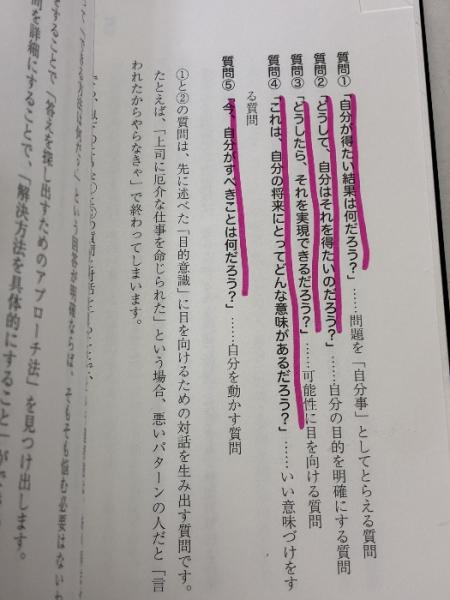 質問① 「自分が得たい結果は何だろう？」……問題を「自分事」としてとらえる質問
質問② 「どうして、自分はそれを得たいのだろう？」……自分の目的を明確にする質問
質問③ 「どうしたら、それを実現できるだろう？」……可能性に目を向ける質問
質問④ 「これは、自分の将来にとってどんな意味があるだろう？」……いい意味づけをす
る質問
質問⑤ 「今、自分がすべきことは何だろう？」……自分を動かす質問
①と②の質問は、先に述べた「目的意識」に目を向けるための対話を生み出す質問です。
たとえば、「上司に厄介な仕事を命じられた」という場合、悪いパターンの人だと「言
われたからやらなきゃ」で終わってしまいます。
という回答が明確ならば、そもそも悩む必要はないわ
することで「答えを探し出すためのアプローチ法」を見つけ出します。
問を詳細にすることで、「解決方法を具体的にすること」ができ